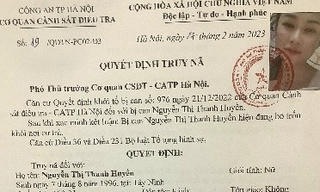 CÔNG AN TP HÀ NỘI
CƠ QUAN CẢNH SÁT ĐIỀU TRA
CỘNG HÒA XÃ HỘI CHỦ NGHĨA VIỆT NAM
Độc lập - Tự do - Hạnh phúc
Số: 19 /QĐTN-PC02-Đ3
Hà Nội, ngày tháng 2 năm 2023
QUYẾT ĐỊNH TRUY NÃ
Phó Thủ trưởng Cơ quan CSĐT - CATP Hà Nội.
Căn cứ Quyết định khởi tố bị can số: 976 ngày 21/12/2022 của Cơ quan Cảnh
sát điều tra - CATP Hà Nội đối với bị can Nguyễn Thị Thanh Huyền.
Sau khi xác minh kết luận: Bị can Nguyễn Thị Thanh Huyền hiện đang bỏ trốn
khỏi nơi cư trú.
Căn cứ Điều 36 và Điều 231 Bộ luật Tố tụng hình sự,
QUYẾT ĐỊNH:
Truy nã đối với:
Họ tên: Nguyễn Thị Thanh Huyền Giới tính: Nữ
Sinh ngày 7 tháng 8 năm 1996, tại: Tây Ninh
Tôn giáo: Không